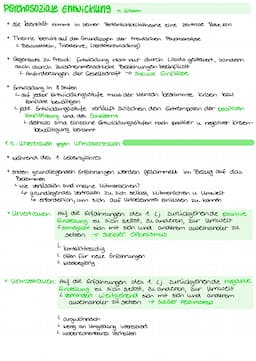 Psychosoziale Entwicklung n. Erikson
• die Identität nimmt in seiner Persönlichkeitstheorie eine zentrale Position
• Theorie beruht auf den Grundlagen der Freudschen Psychoanalyse
↳ Bewusstsein, Triebtheorie,
• Gegensatz zu Freud: Entwicklung nicht nur durch Libido gesteuert, sondern
auch durch zwischenmenschliche Beziehungen beeinflusst
↳ Anforderungen der Gesellschaft → soziale Einflüsse
• Entwicklung in 8 Stufen
↳ auf jeder Entwicklungsstufe muss der Mensch bestimmte Krisen bzw.
Konflikte bewältigen
• jede Entwicklungsstufe verläuft zwischen den Extrempolen der positiven
Entwicklung und des Scheiterns
↳ deshalb sind einzelne Entwicklungsstufen nach positiver u. negativer Krisen-
bewältigung benannt
1. Urvertrauen gegen Urmisstrauen
• während des 1. Lebensjahres
• ersten grundlegenden Erfahrungen werden gesammelt im Bezug auf das
Bekommen
• Wie verlässlich sind meine Mitmenschen?
↳ grundlegendes Vertrauen zu sich selbst, Mitmenschen u. Umwelt
↳ erforderlich, um sich auf Unbekanntes einlassen zu können
• Urvertrauen: Auf die Erfahrungen des 1. LJ. zurückgehende positive
Einstellung zu sich selbst, zu anderen, zur Umwelt
↳ ermöglicht sich mit sich und anderen auseinander zu
setzen → sozialer Optimismus
↳ kontaktfreudig
↳ offen für neue Erfahrungen
↳ wissbegierig
• Urmisstrauen: Auf die Erfahrungen des 1. LJ. zurückgehende negative
Einstellung zu sich selbst, zu anderen, zur Umwelt
↳ verhindert weitgehend sich mit sich und anderen
auseinander zu setzen → sozialer Pessimismus
↳ misstrauisch
↳ wenig an Umgebung interessiert
↳ unberechenbares Verhalten